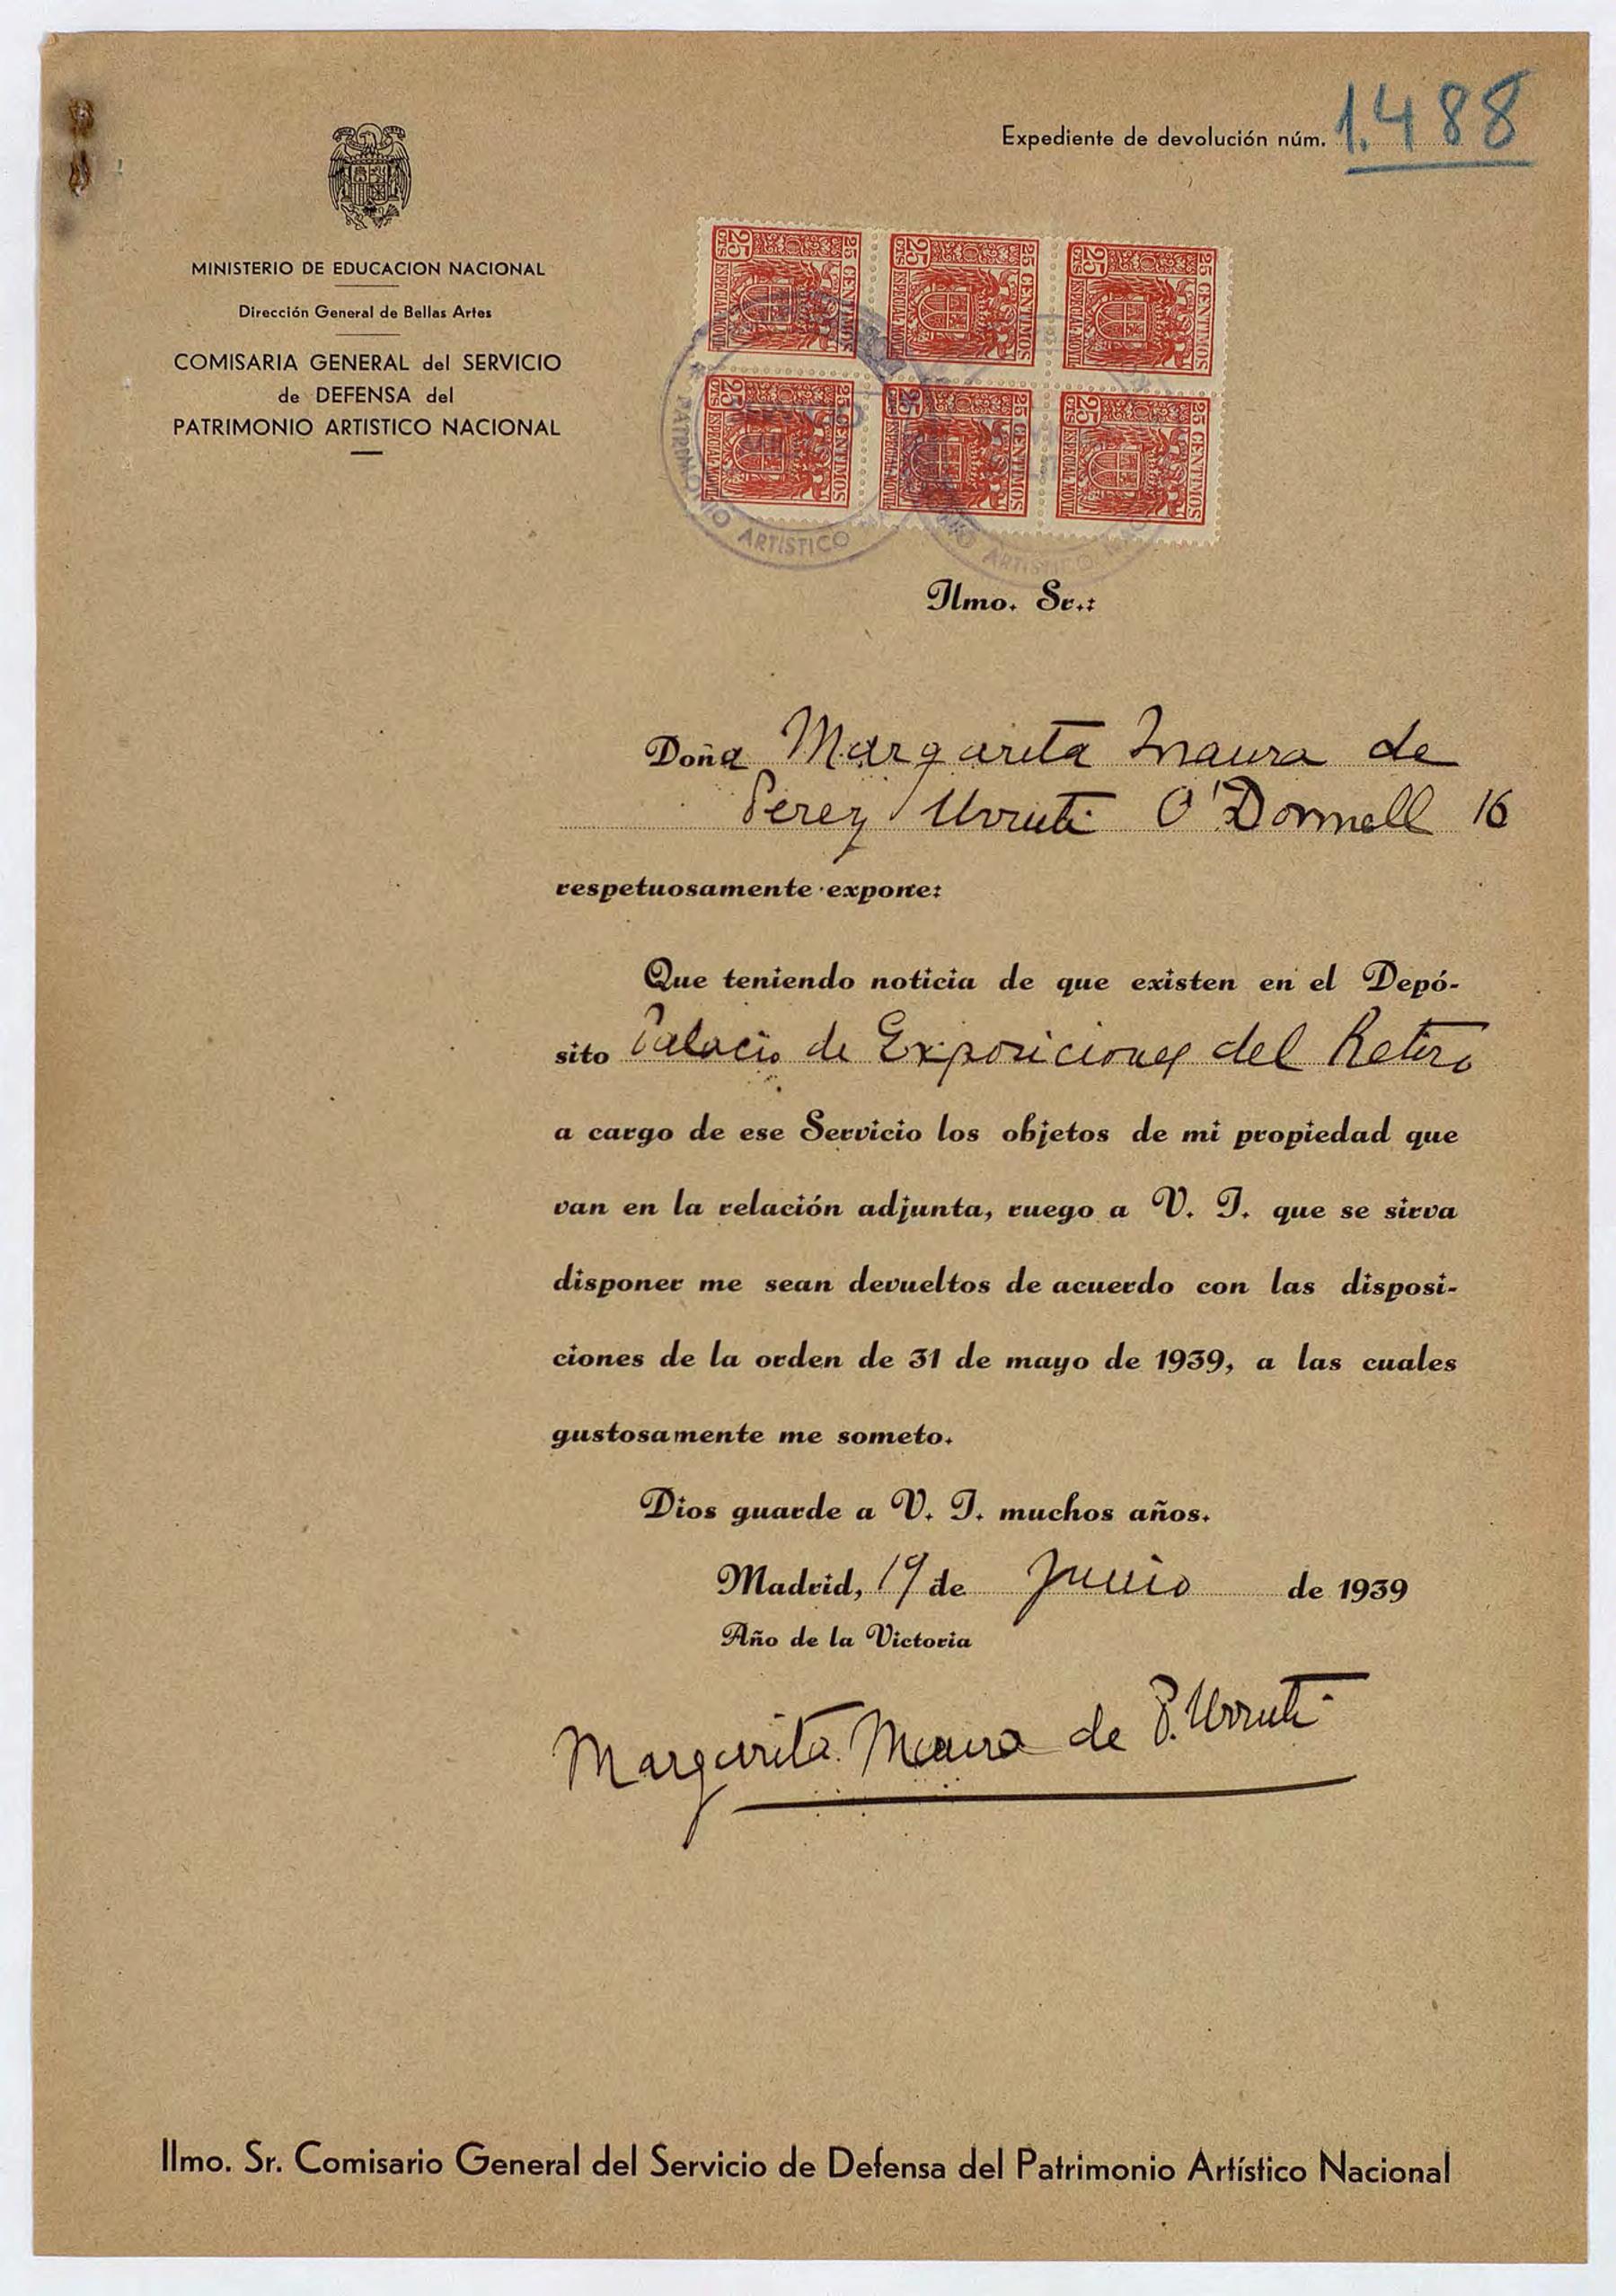 Expediente de devolución núm. 1.488
MINISTERIO DE EDUCACION NACIONAL
Dirección General de Bellas Artes
COMISARIA GENERAL del SERVICIO
de DEFENSA del
PATRIMONIO ARTISTICO NACIONAL
25 CTS 25 CENTIMOS ESPECIAL MOVIL
25 CTS 25 CENTIMOS ESPECIAL MOVIL
25 CTS 25 CENTIMOS ESPECIAL MOVIL
25 CTS 25 CENTIMOS ESPECIAL MOVIL
25 CTS 25 CENTIMOS ESPECIAL MOVIL
25 CTS 25 CENTIMOS ESPECIAL MOVIL
PATRIMONIO ARTISTICO
ARTISTICO
Ilmo. Sr.:
Doña Margarita Maura de
Perez Urruti O'Donnell 16
respetuosamente expone:
Que teniendo noticia de que existen en el Depó-
sito Palacio de Exposiciones del Retiro
a cargo de ese Servicio los objetos de mi propiedad que
van en la relación adjunta, ruego a V. I. que se sirva
disponer me sean devueltos de acuerdo con las disposi-
ciones de la orden de 31 de mayo de 1939, a las cuales
gustosamente me someto.
Dios guarde a V. I. muchos años.
Madrid, 19 de Junio de 1939
Año de la Victoria
Margarita Maura de P. Urruti
Ilmo. Sr. Comisario General del Servicio de Defensa del Patrimonio Artístico Nacional